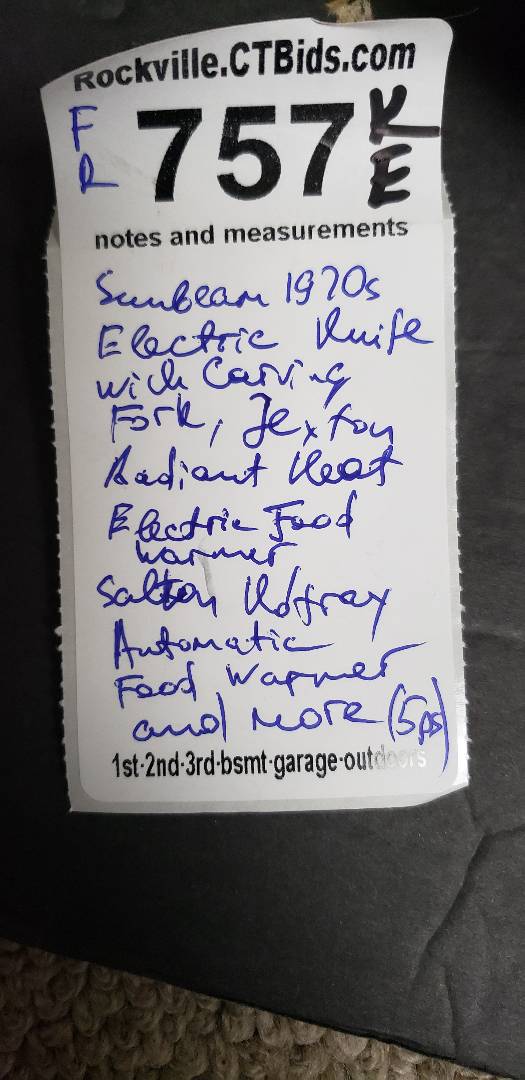 Rockville.CTBids.com
FR 757 KE
notes and measurements
Sunbeam 1970s
Electric Knife
with Carving
Fork, Jexton
Radiant Heat
Electric Food
warmer
Salton Hotray
Automatic
Food Warmer
and more (5ps)
1st-2nd-3rd-bsmt-garage-outdoors